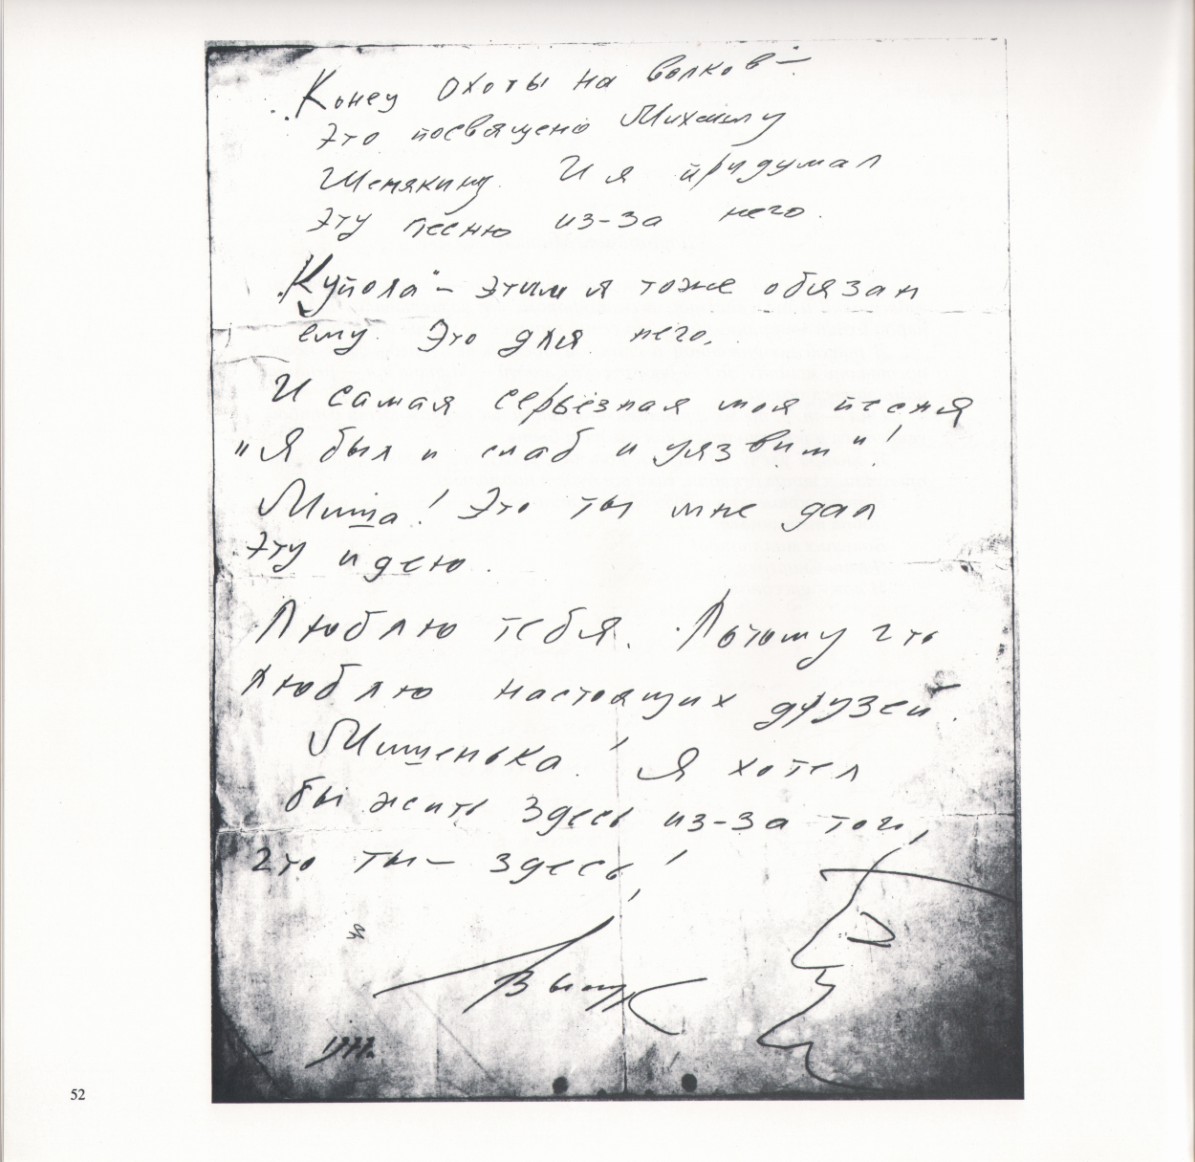 „Конец охоты на волков" —
Это посвящено Михаилу
Шемякину. И я придумал
Эту песню из-за него.
„Купола" — этим я тоже обязан
ему. Это для него.
И самая серьезная моя песня
„Я был и слаб и уязвим"!
Миша! Это ты мне дал
Эту идею.
Люблю тебя. Потому что
люблю настоящих друзей.
Мишенька! Я хотел
бы жить здесь из-за того,
что ты — здесь!
1977г.
52